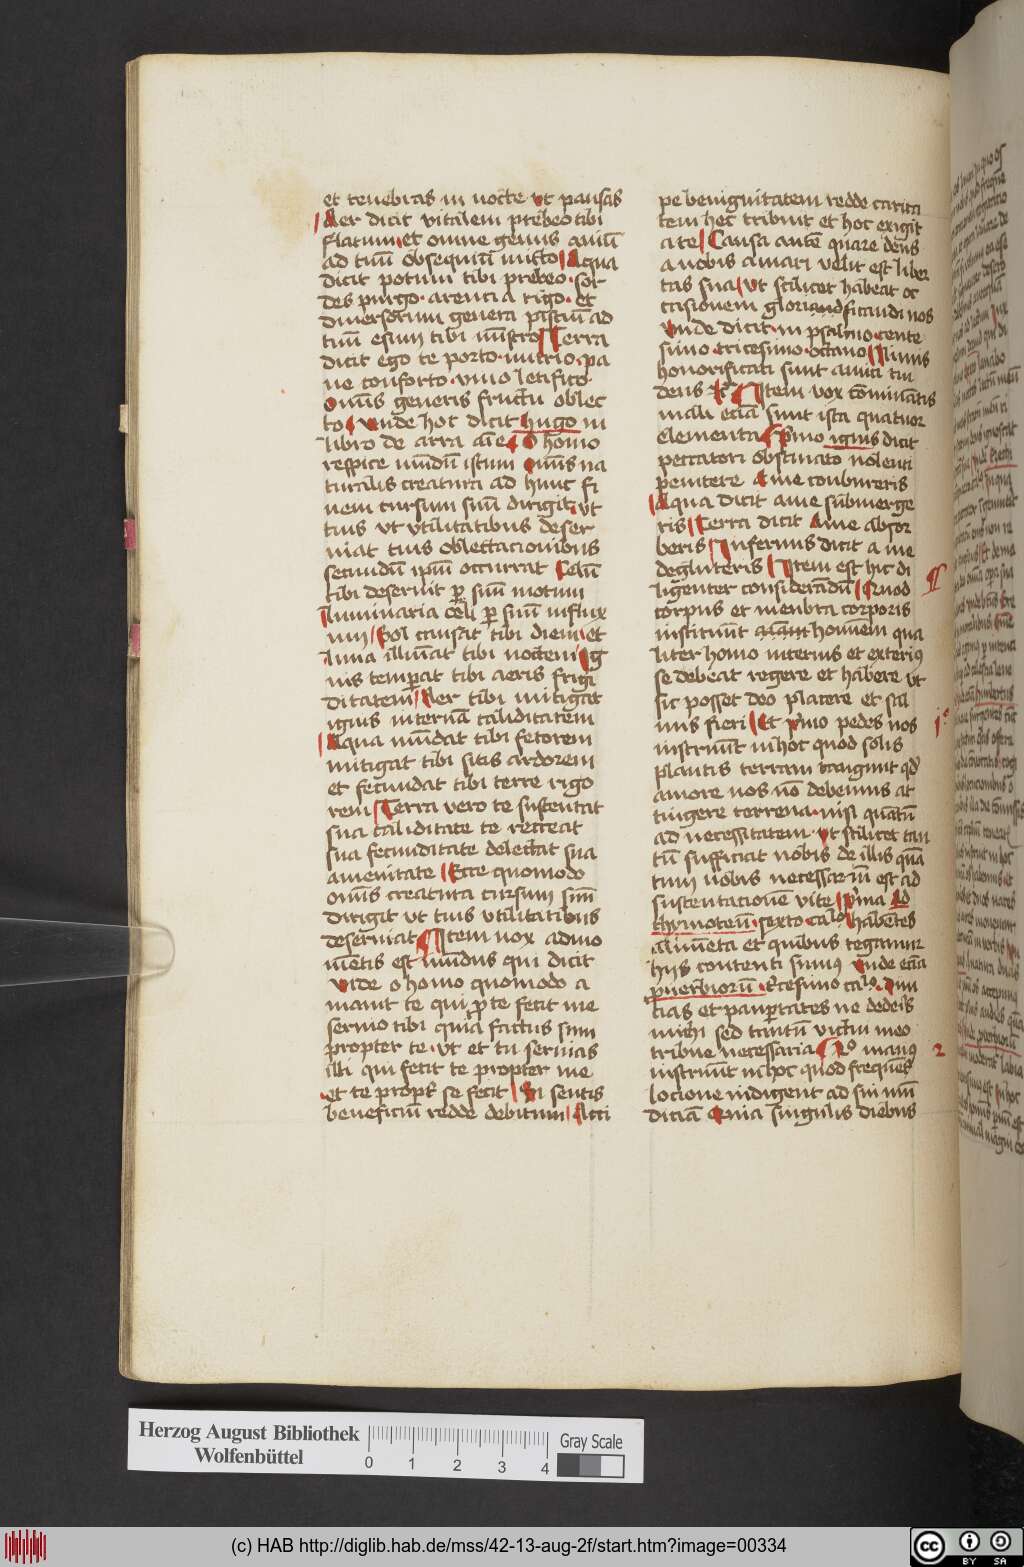 et tenebras in nocte vt pausas
Aer dicit vitalem prebeo tibi
flatum et omne genus auiū
ad tuū obsequiū mitto Aqua
dicit potum tibi prebeo sor
des purgo arencia rigo et
diuersorum genera pisciū ad
tuū esum tibi mīstro Terra
dicit ego te porto nutrio pa
ne conforto vino letifico
omīs generis fructu oblec
to vnde hoc dicit hugo in
libro de arra aīe O homo
respice mūdū istum omīs na
turalis creatura ad hunc fi
nem cursum suū dirigit vt
tuis vt vtilitatibus deser
uiat tuis oblectacionibus
secundū ipsū occurrat Celū
tibi deseruit ꝑ suū motum
luminaria celi ꝑ suū influx
um Sol causat tibi diem et
luna illumīat tibi noctem Ig
nis temꝑat tibi aeris frigi
ditatem Aer tibi mitigat
ignis internā caliditatem
Aqua mūdat tibi fetorem
mitigat tibi sitis ardorem
et fecundat tibi terre rigo
rem Terra vero te sustentat
sua caliditate te recreat
sua fecunditate delectat sua
amenitate Ecce quomodo
omīs creatura cursum suū
dirigit vt tuis vtilitatibus
deseruiat Item vox admo
nētis est mūdus qui dicit
vide o homo quomodo a
mauit te qui ꝓ te fecit me
seruio tibi quia factus sum
propter te vt et tu seruias
illi qui fecit te propter me
et te propt̄ se fecit Si sentis
beneficiū redde debitum Acci
pe benignitatem redde carita
tem hec tribuit et hoc exigit
a te Causa autē quare deus
a nobis amari velit est liber
tas sua vt scilicet habeat oc
casionem glorificandi nos
vnde dicit in psalmo cente
simo tricesimo octauo Nimis
honorificati sunt amici tui
deus Rͦ Item vox cōminātis
mali eciā sunt ista quatuor
elementa P̄mo ignis dicit
peccatori obstinato nolenti
penitere A me conbureris
Aqua dicit a me submerge
ris Terra dicit A me absor
beris Infernus dicit a me
degluteris Item est hic di
ligenter considerādū Quod
corpus et menbra corporis
instituūt hominem qua
liter homo interius et exterius
se debeat regere et habere vt
sic posset deo placere et sal
uus fieri Et p̄mo pedes nos
instruūt in hoc quod solis
plantis terram tangunt qd̄
amore nos nō debemus at
tingere terrena nisi quātū
ad necessitatem vt scilicet tan
tū sufficiat nobis de illis quā
tum nobis necessariū est ad
sustentacionē vite p̄ma Ad
thymoteū sexto caᵒ habētes
alimēta et quibus tegamur
hijs contenti sumus vnde eciā
ꝓuerbiorū tͨcesimo caᵒ Diui
cias et pauꝑtates ne dederis
michi sed tantū victui meo
tribue necessaria 2ᵒ manus
instruūt in hoc quod frequēs
locione indigent ad sui mū
diciā Quia singulis diebus
¶
1ᵒ
2
Herzog August Bibliothek
Wolfenbüttel
0 1 2 3 4
Gray Scale
(c) HAB http://diglib.hab.de/mss/42-13-aug-2f/start.htm?image=00334
cc BY SA